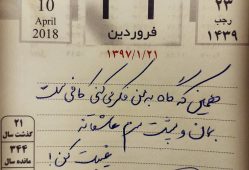 10
April
2018
۲۳
رجب
۱۴۳۹
فروردین
۱۳۹۷/۱/۲۱
۲۱
گذشت سال
۳۴۴
مانده سال
همین که گاه به من فکر می کنی کافی ست
بمان و پشت سرم عاشقانه
غیبت کن!